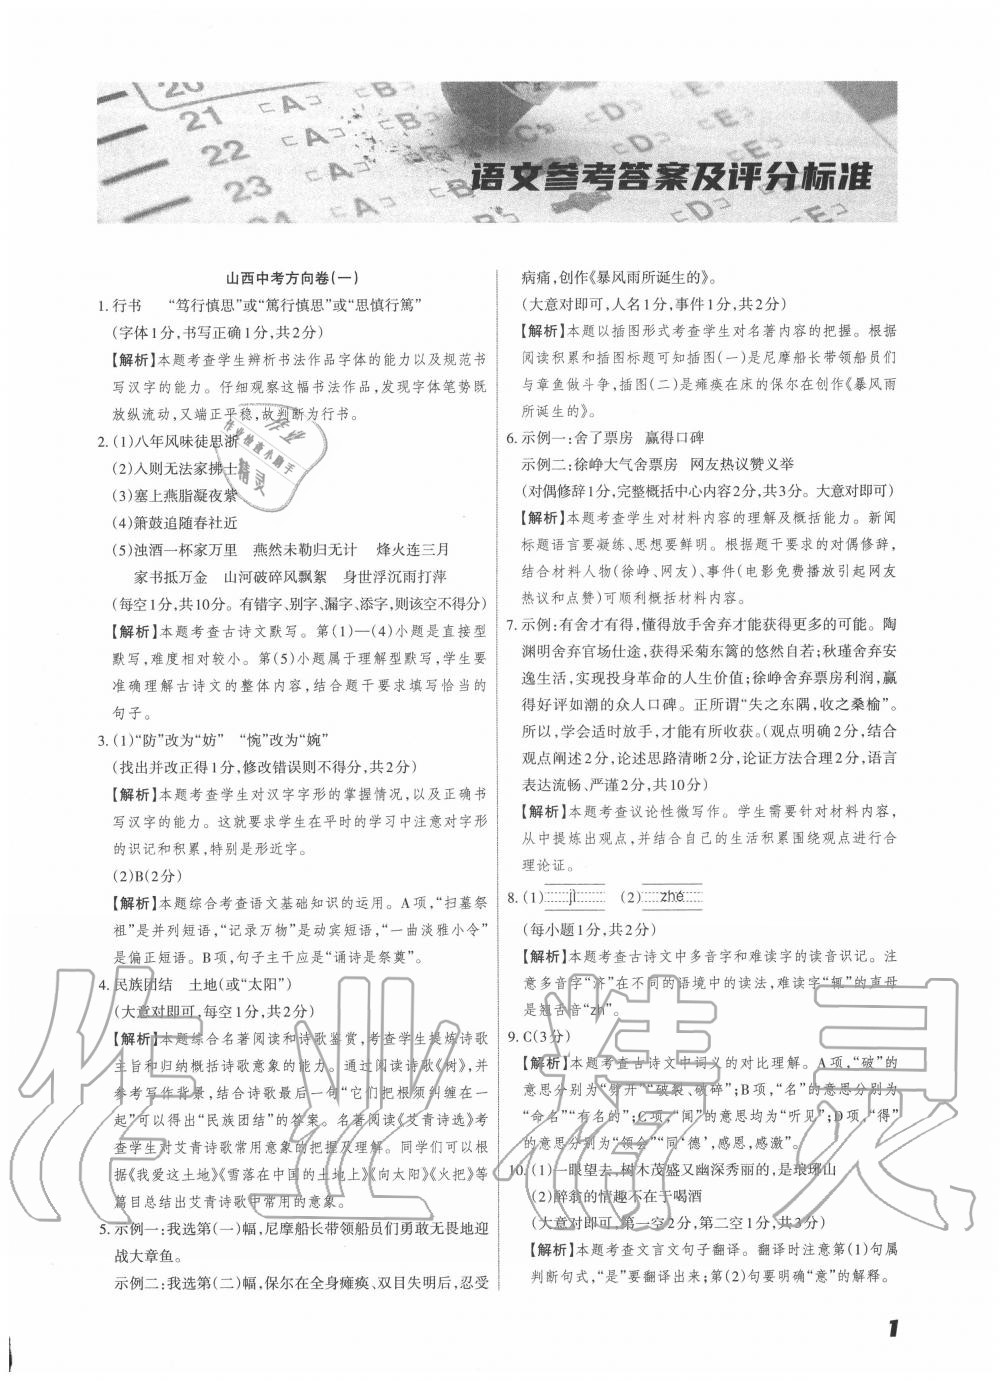 20
21 A B
22 A B C D E
23 A B C D E
D E
语文参考答案及评分标准
山西中考方向卷(一)
1.行书 “笃行慎思”或“篤行慎思”或“思慎行篤”
(字体1分,书写正确1分,共2分)
【解析】本题考查学生辨析书法作品字体的能力以及规范书
写汉字的能力。仔细观察这幅书法作品,发现字体笔势既
放纵流动,又端正平稳,故判断为行书。
2.(1)八年风味徒思浙
(2)入则无法家拂士
(3)塞上燕脂凝夜紫
(4)箫鼓追随春社近
(5)浊酒一杯家万里 燕然未勒归无计 烽火连三月
家书抵万金 山河破碎风飘絮 身世浮沉雨打萍
(每空1分,共10分。有错字、别字、漏字、添字,则该空不得分)
【解析】本题考查古诗文默写。第(1)—(4)小题是直接型
默写,难度相对较小。第(5)小题属于理解型默写,学生要
准确理解古诗文的整体内容,结合题干要求填写恰当的
句子。
3.(1)“防”改为“妨” “惋”改为“婉”
(找出并改正得1分,修改错误则不得分,共2分)
【解析】本题考查学生对汉字字形的掌握情况,以及正确书
写汉字的能力。这就要求学生在平时的学习中注意对字形
的识记和积累,特别是形近字。
(2)B(2分)
【解析】本题综合考查语文基础知识的运用。A项,“扫墓祭
祖”是并列短语,“记录万物”是动宾短语,“一曲淡雅小令”
是偏正短语。B项,句子主干应是“诵诗是祭奠”。
4.民族团结 土地(或“太阳”)
(大意对即可,每空1分,共2分)
【解析】本题综合名著阅读和诗歌鉴赏,考查学生提炼诗歌
主旨和归纳概括诗歌意象的能力。通过阅读诗歌《树》,并
参考写作背景,结合诗歌最后一句“它们把根须纠缠在一
起”可以得出“民族团结”的答案。名著阅读《艾青诗选》考
查学生对艾青诗歌常用意象的把握及理解。同学们可以根
据《我爱这土地》《雪落在中国的土地上》《向太阳》《火把》等
篇目总结出艾青诗歌中常用的意象。
5.示例一:我选第(一)幅,尼摩船长带领船员们勇敢无畏地迎
战大章鱼。
示例二:我选第(二)幅,保尔在全身瘫痪、双目失明后,忍受
病痛,创作《暴风雨所诞生的》。
(大意对即可,人名1分,事件1分,共2分)
【解析】本题以插图形式考查学生对名著内容的把握。根据
阅读积累和插图标题可知插图(一)是尼摩船长带领船员们
与章鱼做斗争,插图(二)是瘫痪在床的保尔在创作《暴风雨
所诞生的》。
6.示例一:舍了票房 赢得口碑
示例二:徐峥大气舍票房 网友热议赞义举
(对偶修辞1分,完整概括中心内容2分,共3分。大意对即可)
【解析】本题考查学生对材料内容的理解及概括能力。新闻
标题语言要凝练、思想要鲜明。根据题干要求的对偶修辞,
结合材料人物(徐峥、网友)、事件(电影免费播放引起网友
热议和点赞)可顺利概括材料内容。
7.示例:有舍才有得,懂得放手舍弃才能获得更多的可能。陶
渊明舍弃官场仕途,获得采菊东篱的悠然自若;秋瑾舍弃安
逸生活,实现投身革命的人生价值;徐峥舍弃票房利润,赢
得好评如潮的众人口碑。正所谓“失之东隅,收之桑榆”。
所以,学会适时放手,才能有所收获。(观点明确2分,结合
观点阐述2分,论述思路清晰2分,论证方法合理2分,语言
表达流畅、严谨2分,共10分)
【解析】本题考查议论性微写作。学生需要针对材料内容,
从中提炼出观点,并结合自己的生活积累围绕观点进行合
理论证。
8.(1)jǐ (2)zhé
(每小题1分,共2分)
【解析】本题考查古诗文中多音字和难读字的读音识记。注
意多音字“济”在不同的语境中的读法,难读字“辄”的声母
是翘舌音“zh”。
9.C(3分)
【解析】本题考查古诗文中词义的对比理解。A项,“破”的
意思分别为“劈开”“破裂、破碎”;B项,“名”的意思分别为
“命名”“有名的”;C项,“闻”的意思均为“听见”;D项,“得”
的意思分别为“领会”“同‘德’,感恩,感激”。
10.(1)一眼望去,树木茂盛又幽深秀丽的,是琅琊山
(2)醉翁的情趣不在于喝酒
(大意对即可,第一空2分,第二空1分,共3分)
【解析】本题考查文言文句子翻译。翻译时注意第(1)句属
判断句式,“是”要翻译出来;第(2)句要明确“意”的解释。
1
作业精灵
作业
作业检查小助手
精灵